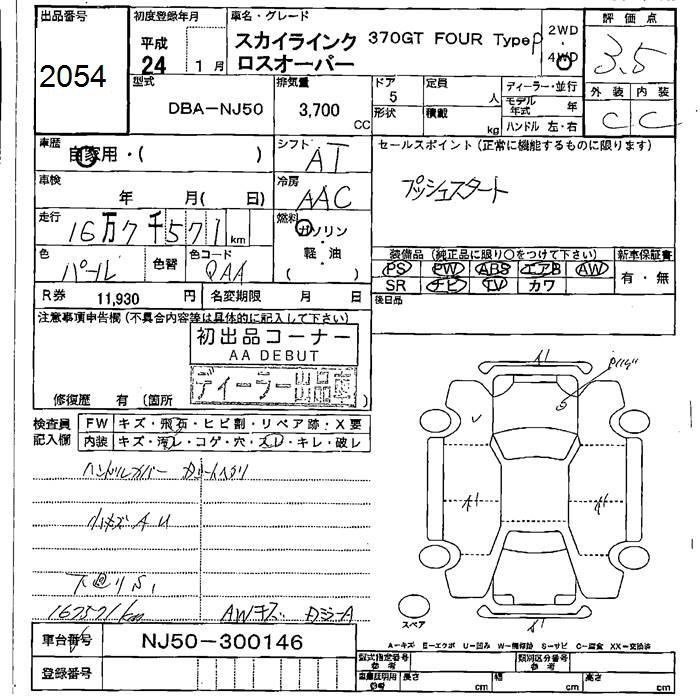 出品番号
2054
初度登録年月
平成
24 1月
車名・グレード
スカイラインク
ロスオーバー
370GT FOUR Type P
2WD
・
4WD
評価点
3.5
型式
DBA-NJ50
排気量
3,700
CC
ドア
5
形状
定員
人
積載
kg
ディーラー・並行
モデル
年式 年
ハンドル 左・右
外装 内装
C C
車歴
自家用・( )
シフト
AT
セールスポイント (正常に機能するものに限ります)
プッシュスタート
車検
年 月( 日)
冷房
AAC
走行
16万7千571km
燃料
ガソリン
・
軽油
( )
色
パール
色替
色コード
QAA
装備品 (純正品に限り○をつけて下さい)
新車保証書
PS PW ABS エアB AW
SR ナビ TV カワ
有・無
R券 11,930 円
名変期限 月 日
後日品
注意事項申告欄 (不具合内容等は具体的に記入して下さい)
初出品コーナー
AA DEBUT
ディーラー出品車
修復歴 有 (箇所 )
検査員
記入欄
FW キズ・飛石・ヒビ割・リペア跡・X要
内装 キズ・汚レ・コゲ・穴・スレ・キレ・破レ
ハンドルカバー
小キズAU
下廻りS1
167571km
AWキズ
A1
A1
A1
A1
スペア
車台番号
NJ50-300146
登録番号
A-キズ E-エクボ U-凹み W-補修跡 S-サビ C-腐食 XX-交換済
型式指定番号
参考
類別区分番号
参考
車庫証明用
参考
長さ cm
幅 cm
高さ cm